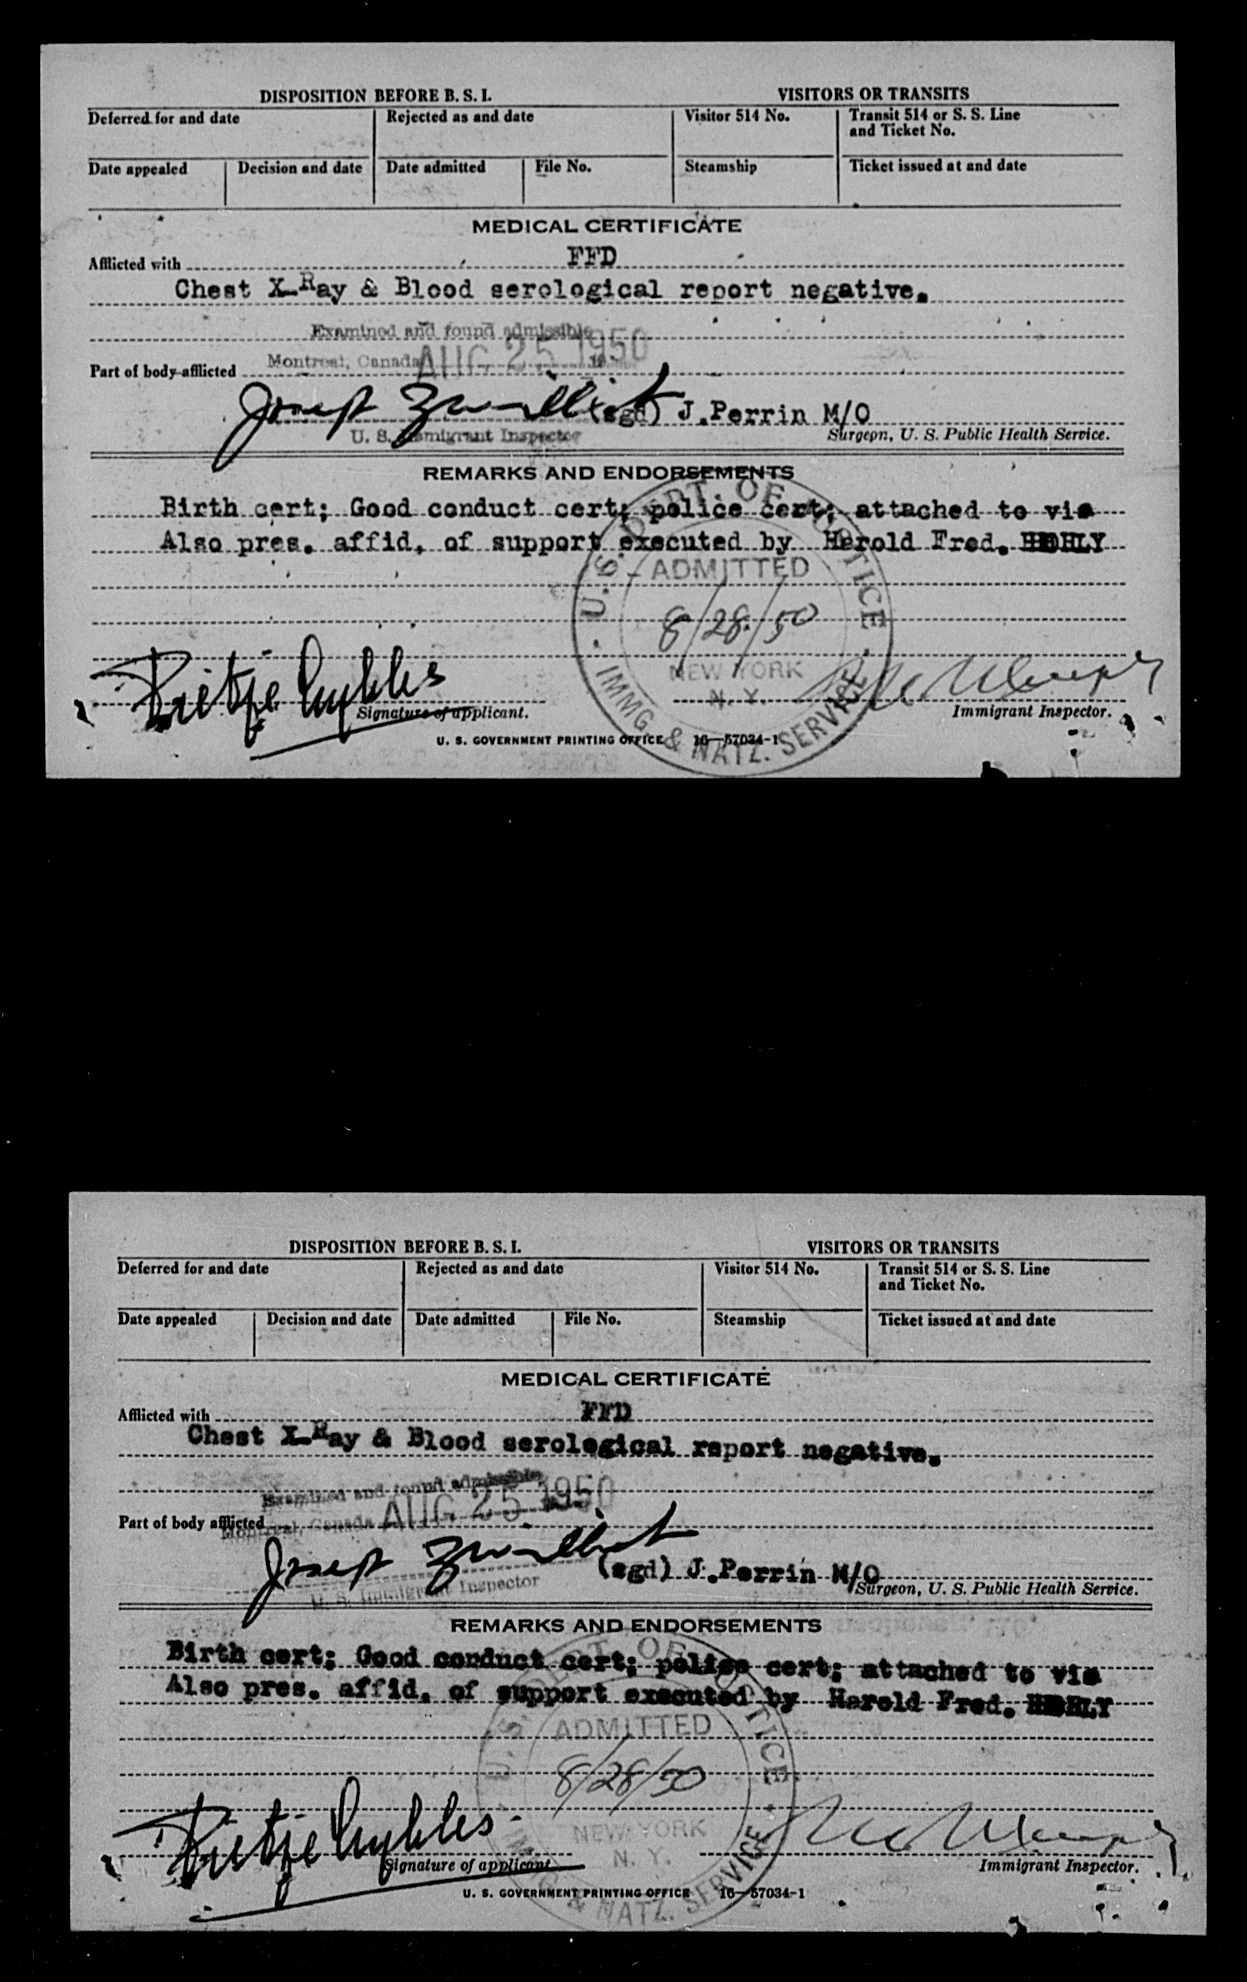 DISPOSITION BEFORE B. S. I.
VISITORS OR TRANSITS
Deferred for and date
Rejected as and date
Visitor 514 No.
Transit 514 or S. S. Line and Ticket No.
Date appealed
Decision and date
Date admitted
File No.
Steamship
Ticket issued at and date
MEDICAL CERTIFICATE
Afflicted with FFD
Chest X-Ray & Blood serological report negative.
Examined and found admissible
Montreal, Canada AUG 25 1950
Part of body afflicted
Joseph
(sgd) J.Perrin M/O
U. S. Immigrant Inspector
Surgeon, U. S. Public Health Service.
REMARKS AND ENDORSEMENTS
Birth cert; Good conduct cert; police cert; attached to vis
Also pres. affid. of support executed by Harold Fred.
U. S. DEPT. OF JUSTICE
ADMITTED
8/28/50
NEW YORK
N. Y.
IMMG. & NATZ. SERVICE
Signature of applicant.
Immigrant Inspector.
U. S. GOVERNMENT PRINTING OFFICE 16—57034-1
DISPOSITION BEFORE B. S. I.
VISITORS OR TRANSITS
Deferred for and date
Rejected as and date
Visitor 514 No.
Transit 514 or S. S. Line and Ticket No.
Date appealed
Decision and date
Date admitted
File No.
Steamship
Ticket issued at and date
MEDICAL CERTIFICATE
Afflicted with FFD
Chest X-Ray & Blood serological report negative.
Examined and found admissible
Montreal, Canada AUG 25 1950
Part of body afflicted
Joseph
(sgd) J.Perrin M/O
U. S. Immigrant Inspector
Surgeon, U. S. Public Health Service.
REMARKS AND ENDORSEMENTS
Birth cert; Good conduct cert; police cert; attached to vis
Also pres. affid. of support executed by Harold Fred.
U. S. DEPT. OF JUSTICE
ADMITTED
8/28/50
NEW YORK
N. Y.
IMMG. & NATZ. SERVICE
Signature of applicant.
Immigrant Inspector.
U. S. GOVERNMENT PRINTING OFFICE 16—57034-1